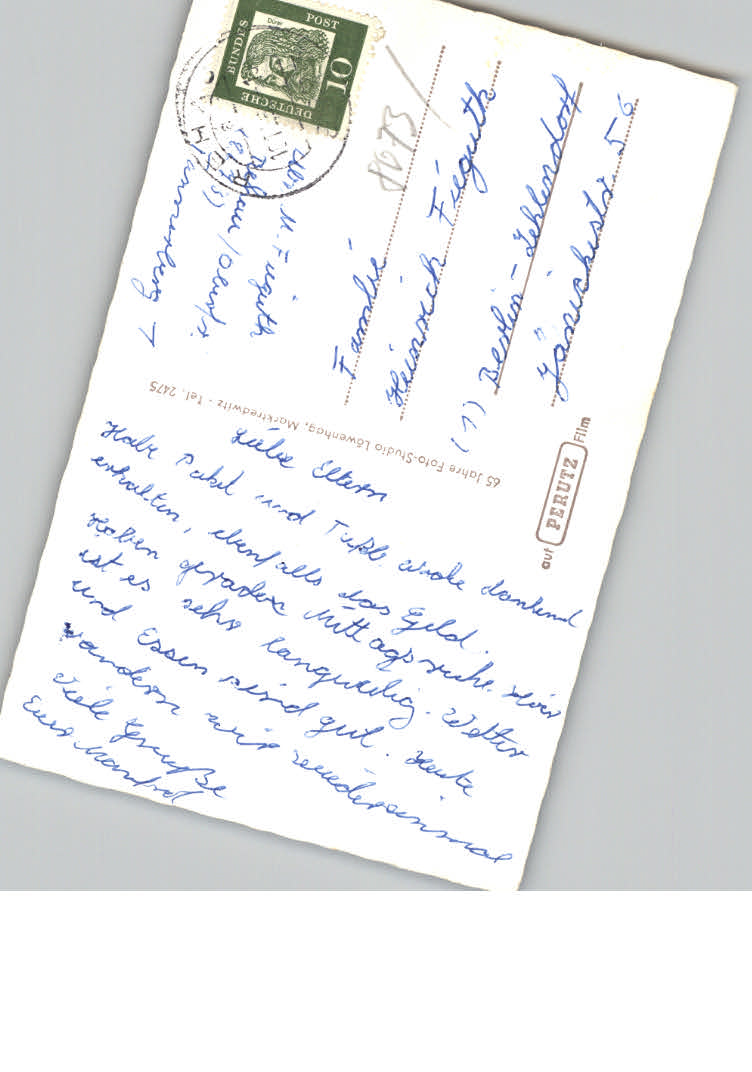 Liebe Eltern
Habe Paket und dankend
erhalten, ebenfalls das Geld.
Haben gerade Mittagsruhe. Hier
ist es sehr langweilig. Wetter
und Essen sind gut. Heute
wandern wir wiedereinmal
Viele Grüße
Euer Manfred
65 Jahre Foto-Studio Löwenhag, Marktredwitz - Tel. 2475
auf PERUTZ Film
DEUTSCHE BUNDES POST
10
M. Fieguth
8073
Familie
Heinrich Fieguth
(1) Berlin - Zehlendorf
Jänickestr. 56